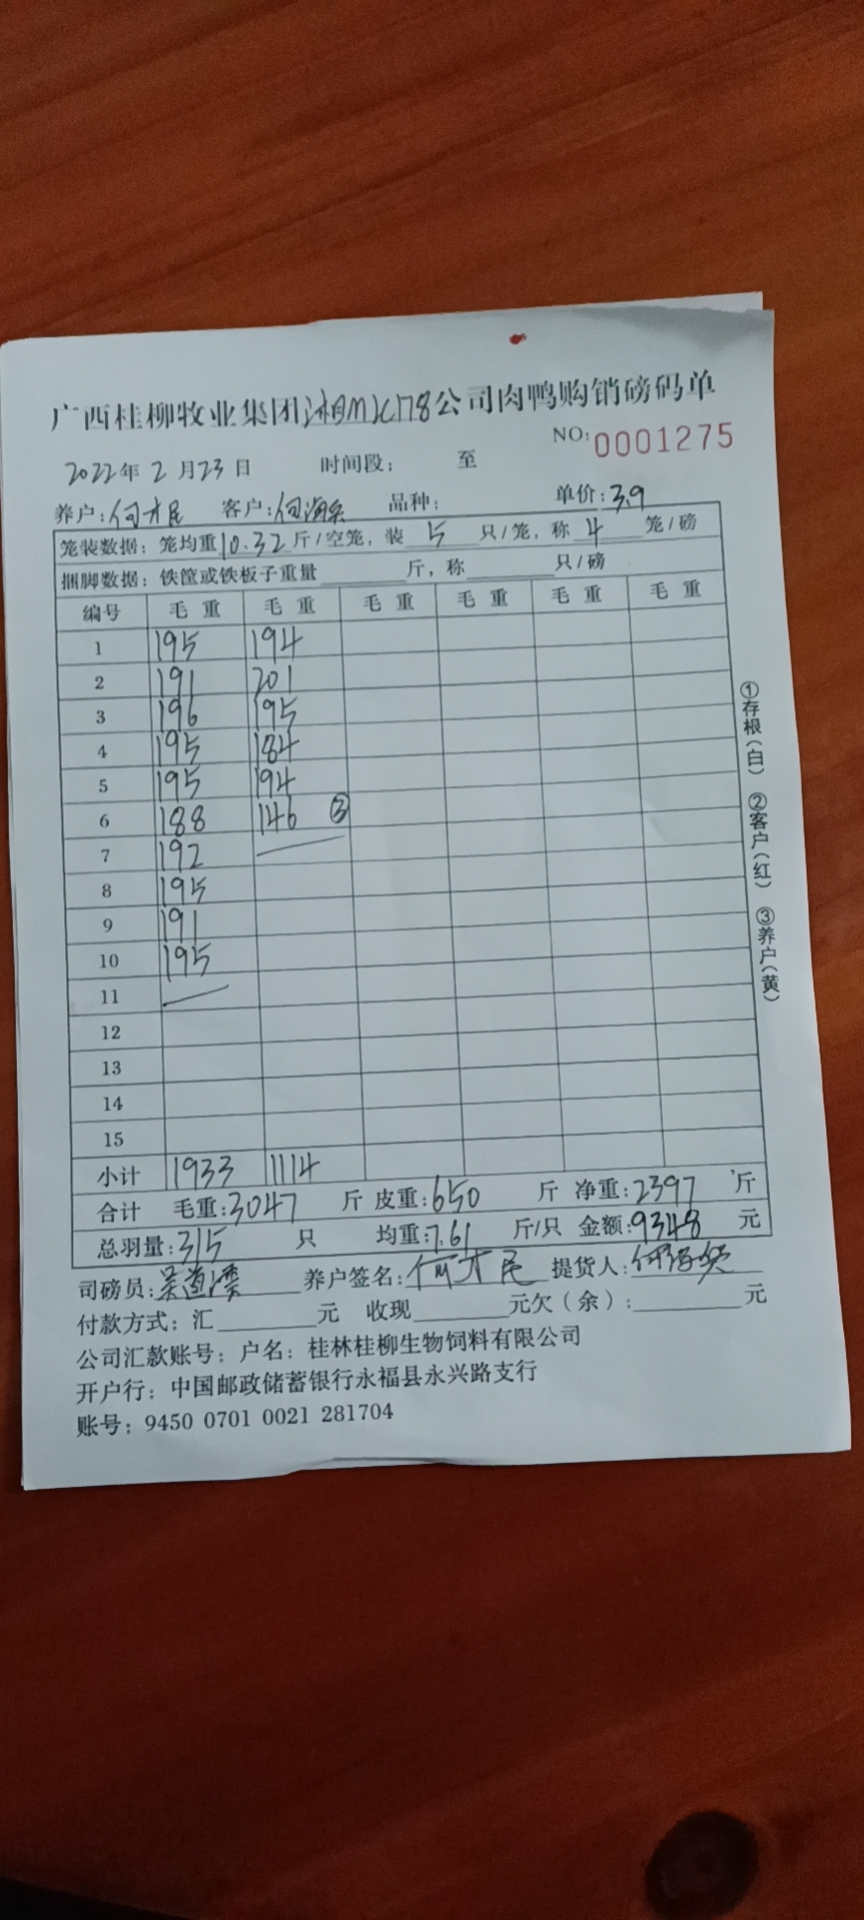 广西桂柳牧业集团 公司肉鸭购销磅码单
NO:0001275
2022年2月23日 时间段: 至
养户:何才民 客户:何海 品种: 单价:3.9
笼装数据:笼均重10.32斤/空笼,装5只/笼,称4笼/磅
捆脚数据:铁筐或铁板子重量 斤,称 只/磅
编号 毛重 毛重 毛重 毛重 毛重 毛重
1 195 194
2 191 201
3 196 195
4 195 184
5 195 194
6 188 146 ③
7 192
8 195
9 191
10 195
11
12
13
14
15
小计 1933 1114
合计 毛重:3047 斤 皮重:650 斤 净重:2397 斤
总羽量:315 只 均重:7.61 斤/只 金额:9348 元
司磅员:吴道 养户签名:何才民 提货人:何
付款方式:汇 元 收现 元欠(余): 元
公司汇款账号:户名:桂林桂柳生物饲料有限公司
开户行:中国邮政储蓄银行永福县永兴路支行
账号:9450 0701 0021 281704
①存根(白) ②客户(红) ③养户(黄)